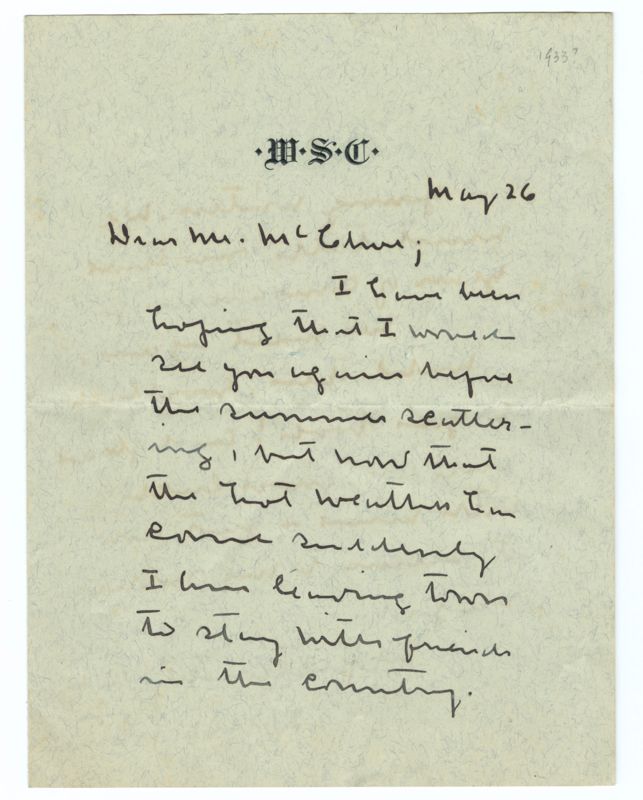 1933?
·W·S·C·
May 26
Dear Mr. McClure;
I have been
hoping that I would
see you again before
the summer scatter-
ing, but now that
the hot weather has
come suddenly
I am leaving town
to stay with friends
in the country.